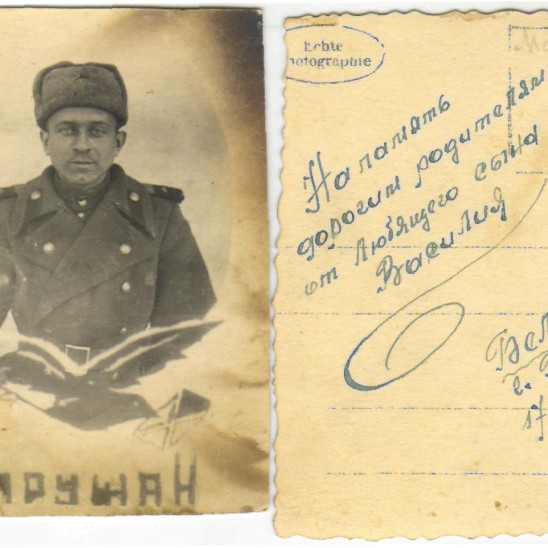 АРУШАН
Echte
Photographie
На память
дорогим родителям
от любящего сына
Василия
г.
17